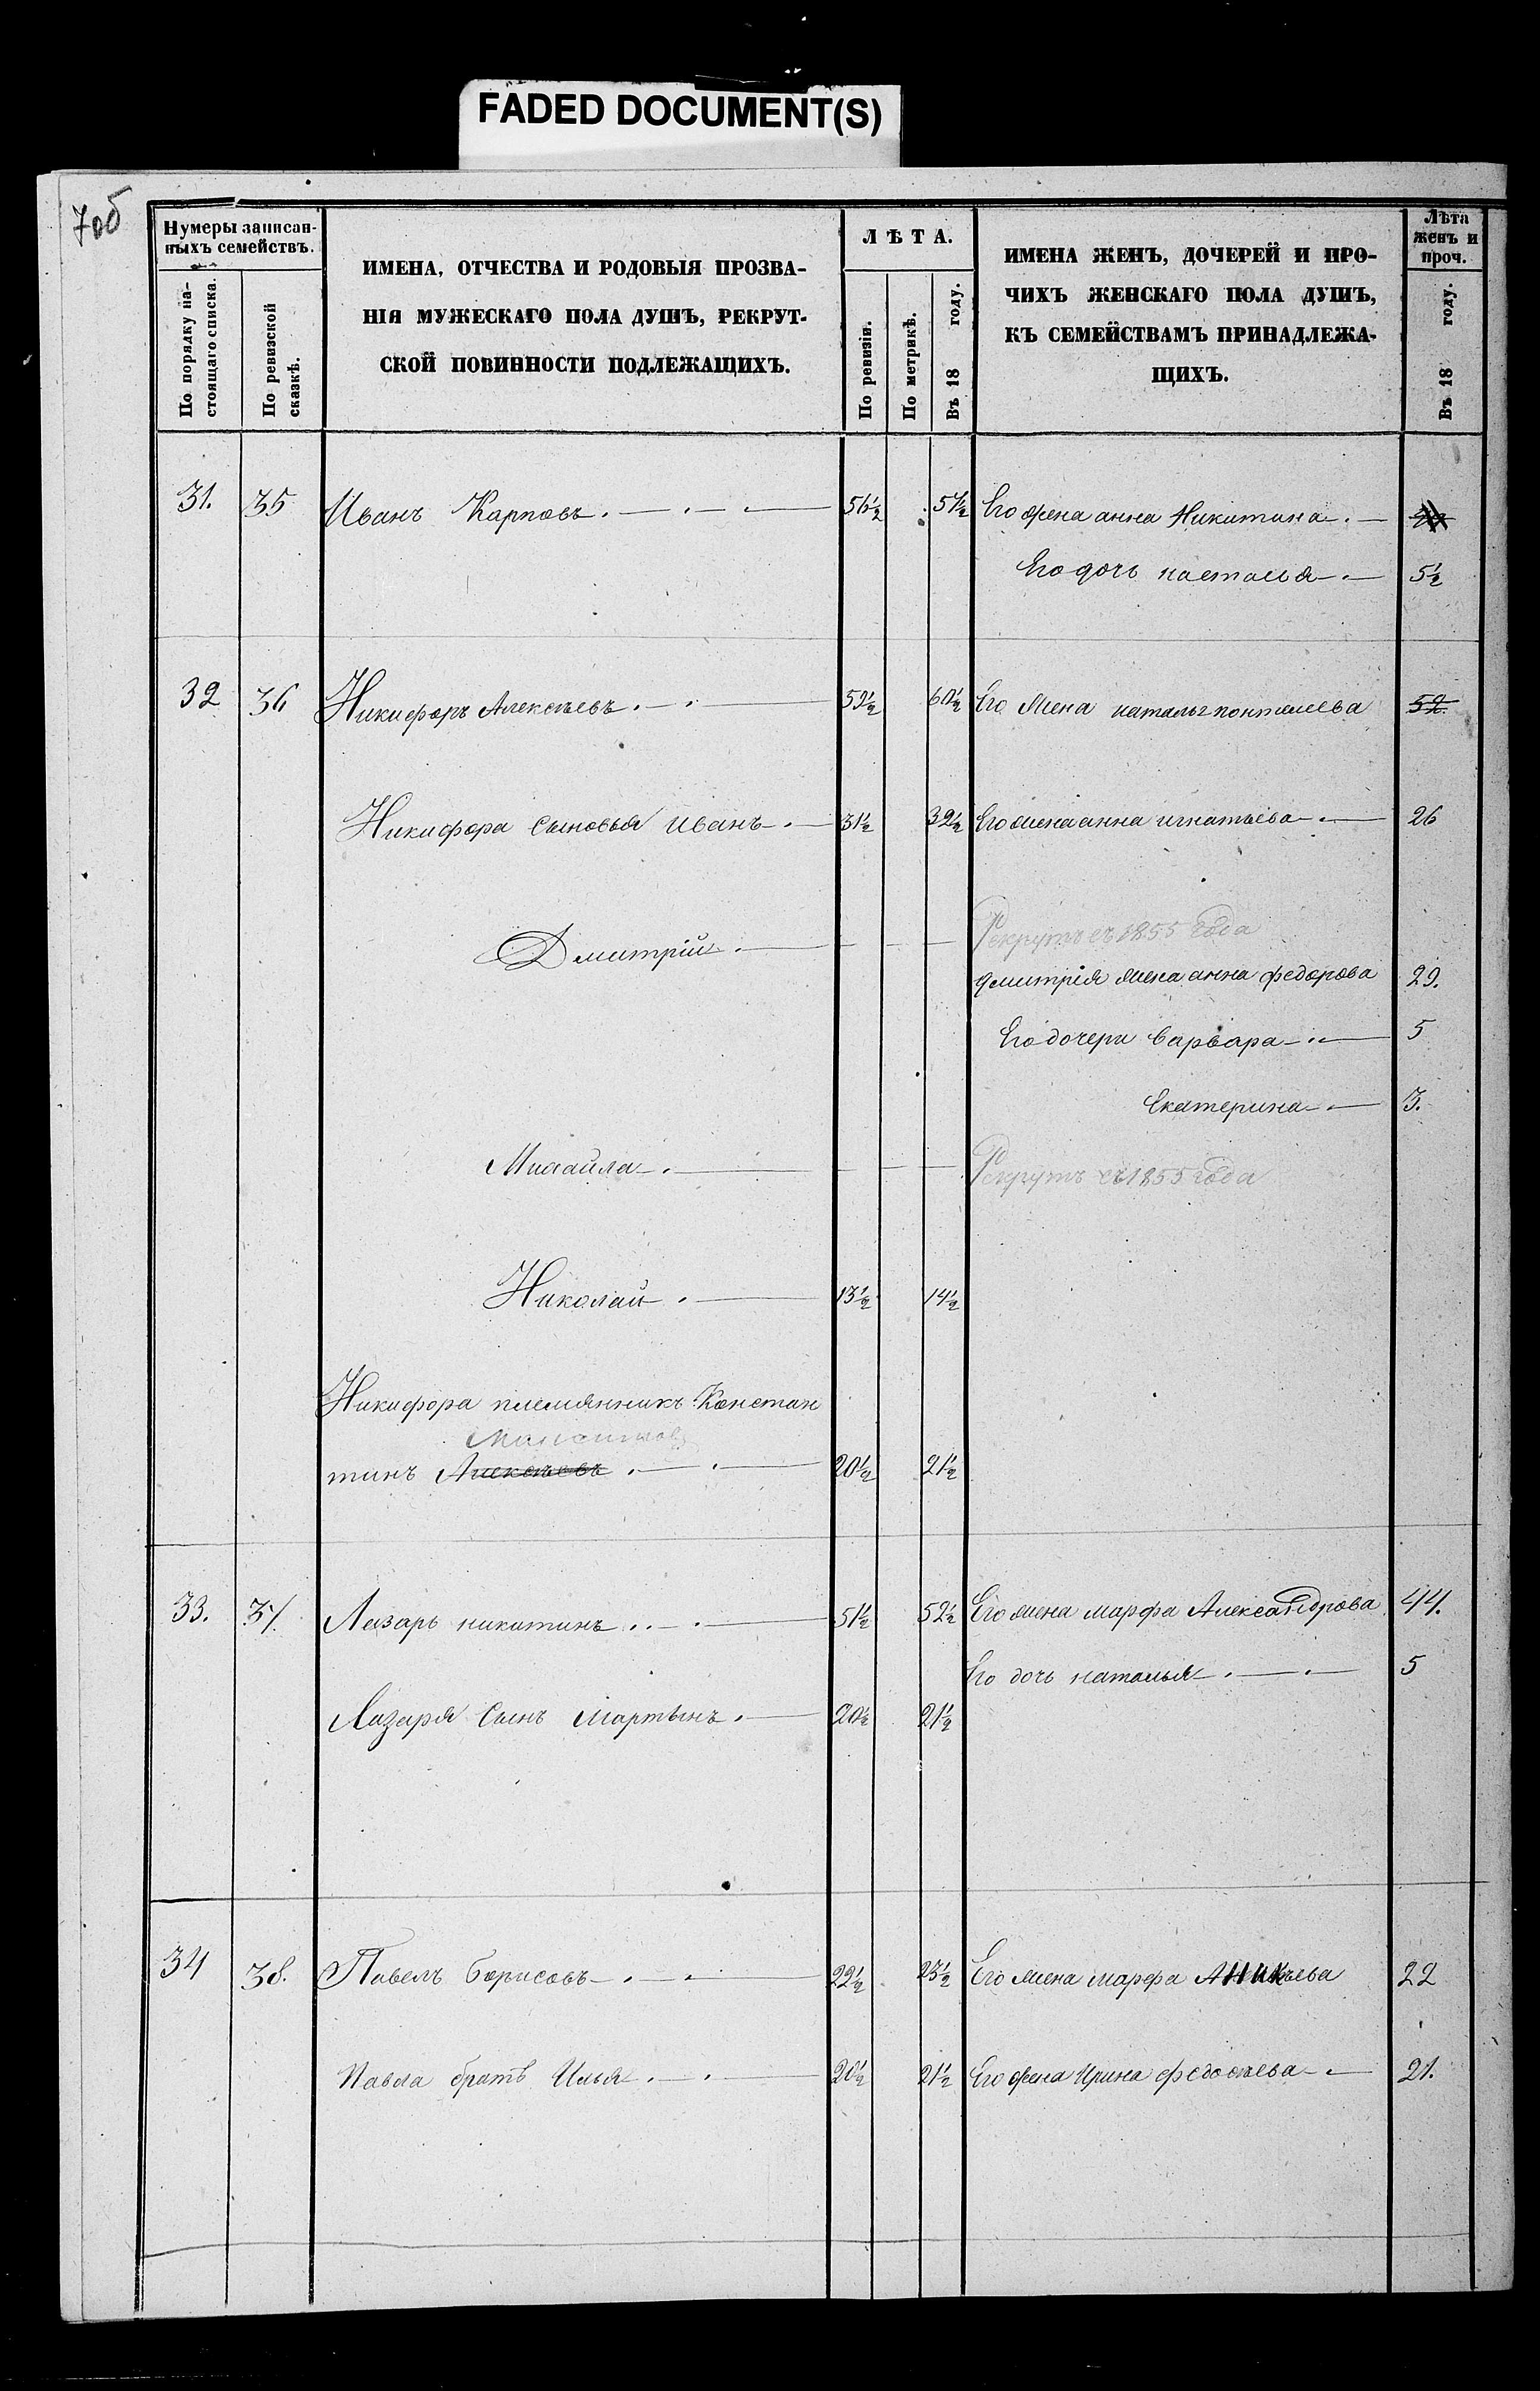 FADED DOCUMENT(S)
7об
Нумеры записан-
ныхъ семействъ.
По порядку на-
стоящаго списка.
По ревизской
сказкѣ.
ИМЕНА, ОТЧЕСТВА И РОДОВЫЯ ПРОЗВА-
НІЯ МУЖЕСКАГО ПОЛА ДУШЪ, РЕКРУТ-
СКОЙ ПОВИННОСТИ ПОДЛЕЖАЩИХЪ.
ЛѢТА.
По ревизіи.
По метрикѣ.
Въ 18 году.
ИМЕНА ЖЕНЪ, ДОЧЕРЕЙ И ПРО-
ЧИХЪ ЖЕНСКАГО ПОЛА ДУШЪ,
КЪ СЕМЕЙСТВАМЪ ПРИНАДЛЕЖА-
ЩИХЪ.
Лѣта
женъ и
проч.
Въ 18 году.
31. 35 Иванъ Карповъ. 56½ 57½ Его жена анна Никитина
Его дочь настасья 5½
32 36 Никифоръ Алексѣевъ. 59½ 60½ Его жена наталья понтелеева 52
Никифора сыновья иванъ 31½ 32½ Его жена анна игнатьева 26
Дмитрій Рекрутъ съ 1855 года
дмитрія жена анна федорова 29.
Его дочери варвара 5
Екатерина 3.
Михайла Рекрутъ съ 1855 года
Николай 13½ 14½
Никифора племянникъ Констан
Максимовъ
тинъ Алексѣевъ 20½ 21½
33. 37. Лазарь никитинъ 51½ 52½ Его жена марфа Александрова 44.
Его дочь наталья 5
Лазаря сынъ мартынъ 20½ 21½
34 38. Павелъ борисовъ 22½ 23½ Его жена марфа Аникьева 22
Павла братъ Илья 20½ 21½ Его жена Ирина федосѣева 21.